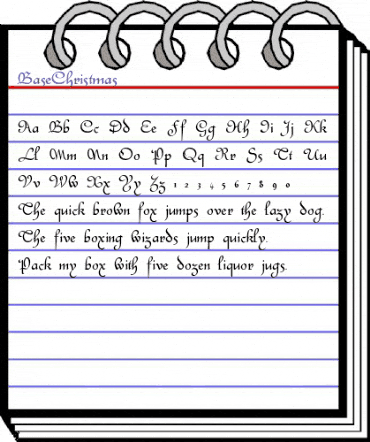 BaseChristmas
Aa Bb Cc Dd Ee Ff Gg Hh Ii Jj Kk
Ll Mm Nn Oo Pp Qq Rr Ss Tt Uu
Vv Ww Xx Yy Zz 1 2 3 4 5 6 7 8 9 0
The quick brown fox jumps over the lazy dog.
The five boxing wizards jump quickly.
Pack my box with five dozen liquor jugs.